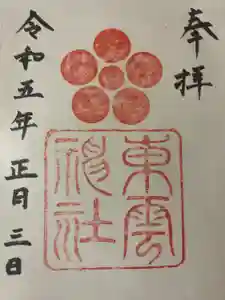 奉拝
東雲神社
令和五年正月三日